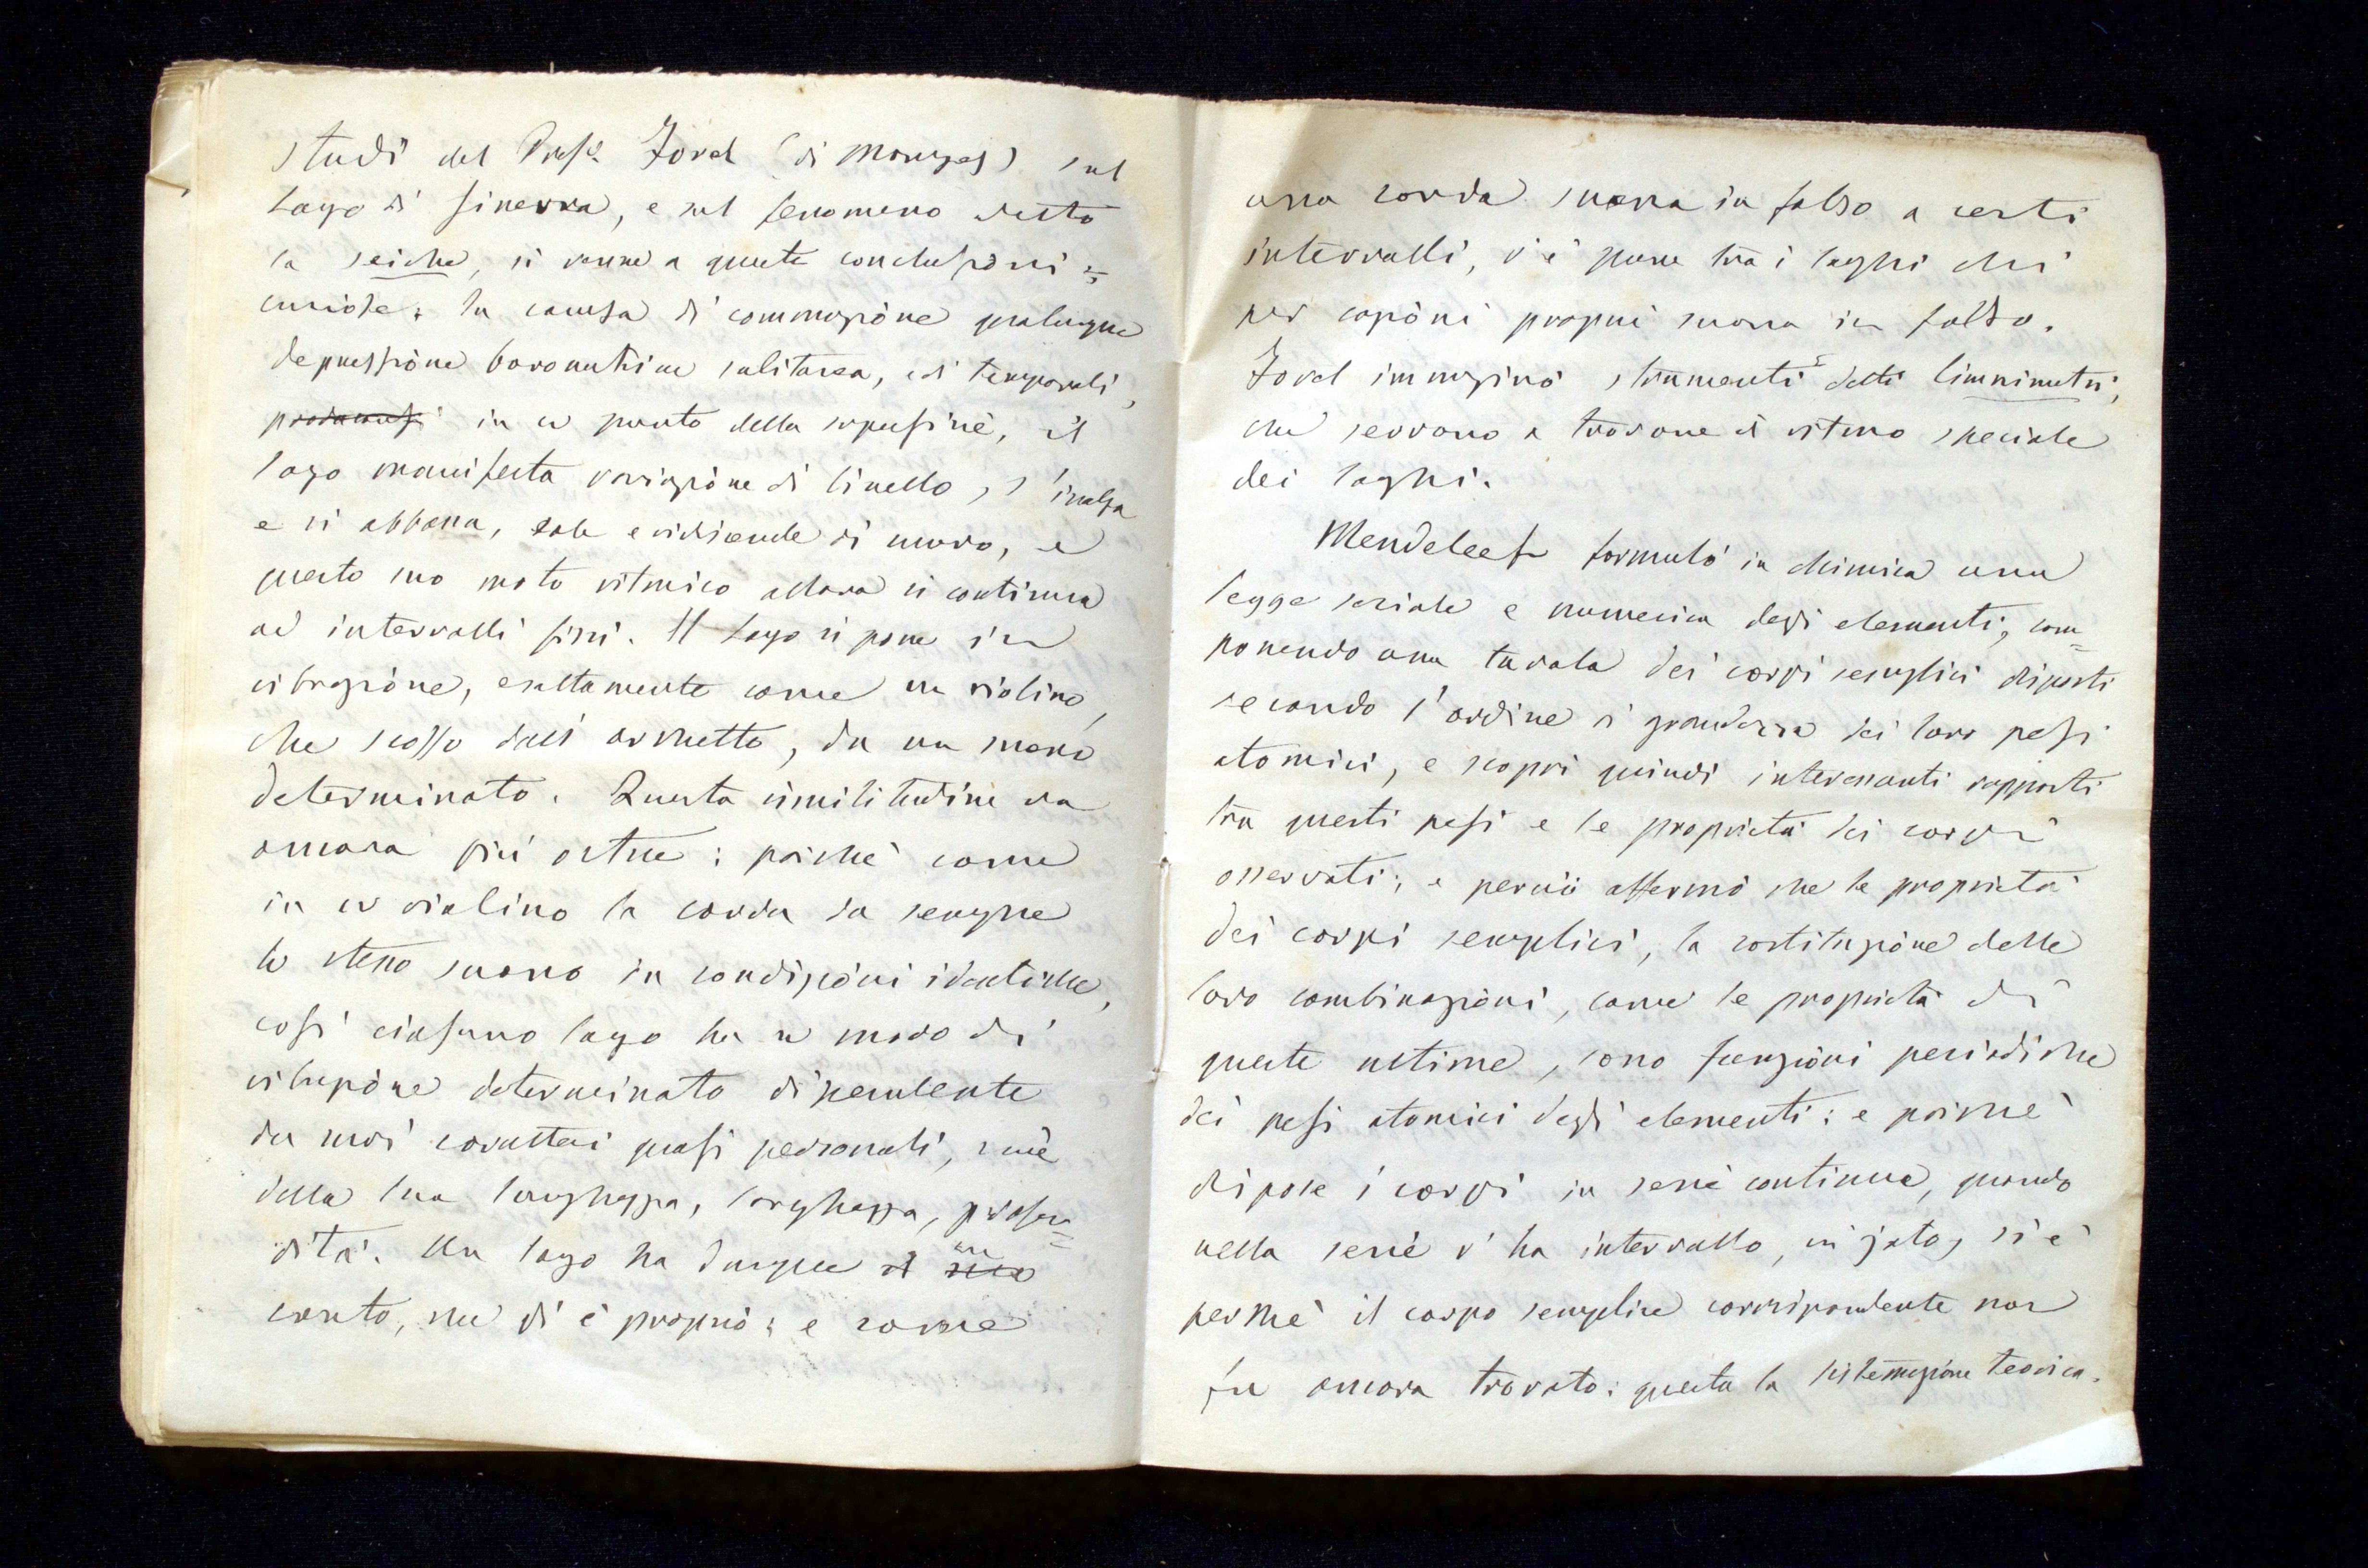 studi del Prof.r Forel (di Morges) sul
Lago di Ginevra, e sul fenomeno detto
la seiche, si venne a queste conclusioni
curiose: la causa di commozione qualunque
depressione barometrica subitanea, ed temporali,
in un punto della superficie, il
lago manifesta variazione di livello, s'inalza
e si abbassa, sale e ridiscende di nuovo, e
questo suo moto ritmico allora si continua
ad intervalli fissi. Il Lago si pone in
vibrazione, esattamente come un violino,
che scosso dall'archetto, da un suono
determinato. Questa similitudine va
ancora più oltre: poichè come
in un violino la corda da sempre
lo stesso suono in condizioni identiche,
così ciascuno lago ha un modo di
vibrazione determinato dipendente
da suoi caratteri quasi personali, cioè
della sua lunghezza, larghezza, profon=
dità. Un lago ha dunque un
canto, che gli è proprio; e come
una corda suona in falso a certi
intervalli, v'è pure tra i laghi chi
per cagioni proprie suona in falso.
Forel immaginò strumenti detti limnimetri,
che servono a trovare il ritmo speciale
dei laghi.
Mendeleeff formulò in chimica una
legge seriale e numerica degli elementi, com=
ponendo una tavola dei corpi semplici disposti
secondo l'ordine di grandezza dei loro pesi
atomici, e scoprì quindi interessanti rapporti
tra questi pesi e le proprietà dei corpi
osservati; e perciò affermò che le proprietà
dei corpi semplici, la costituzione delle
loro combinazioni, come le proprietà di
queste ultime, sono funzioni periodiche
dei pesi atomici degli elementi: e poichè
dispose i corpi in serie continua, quando
nella serie v'ha intervallo, un jato, si è
perchè il corpo semplice corrispondente non
fu ancora trovato: questa la sistemazione teorica.